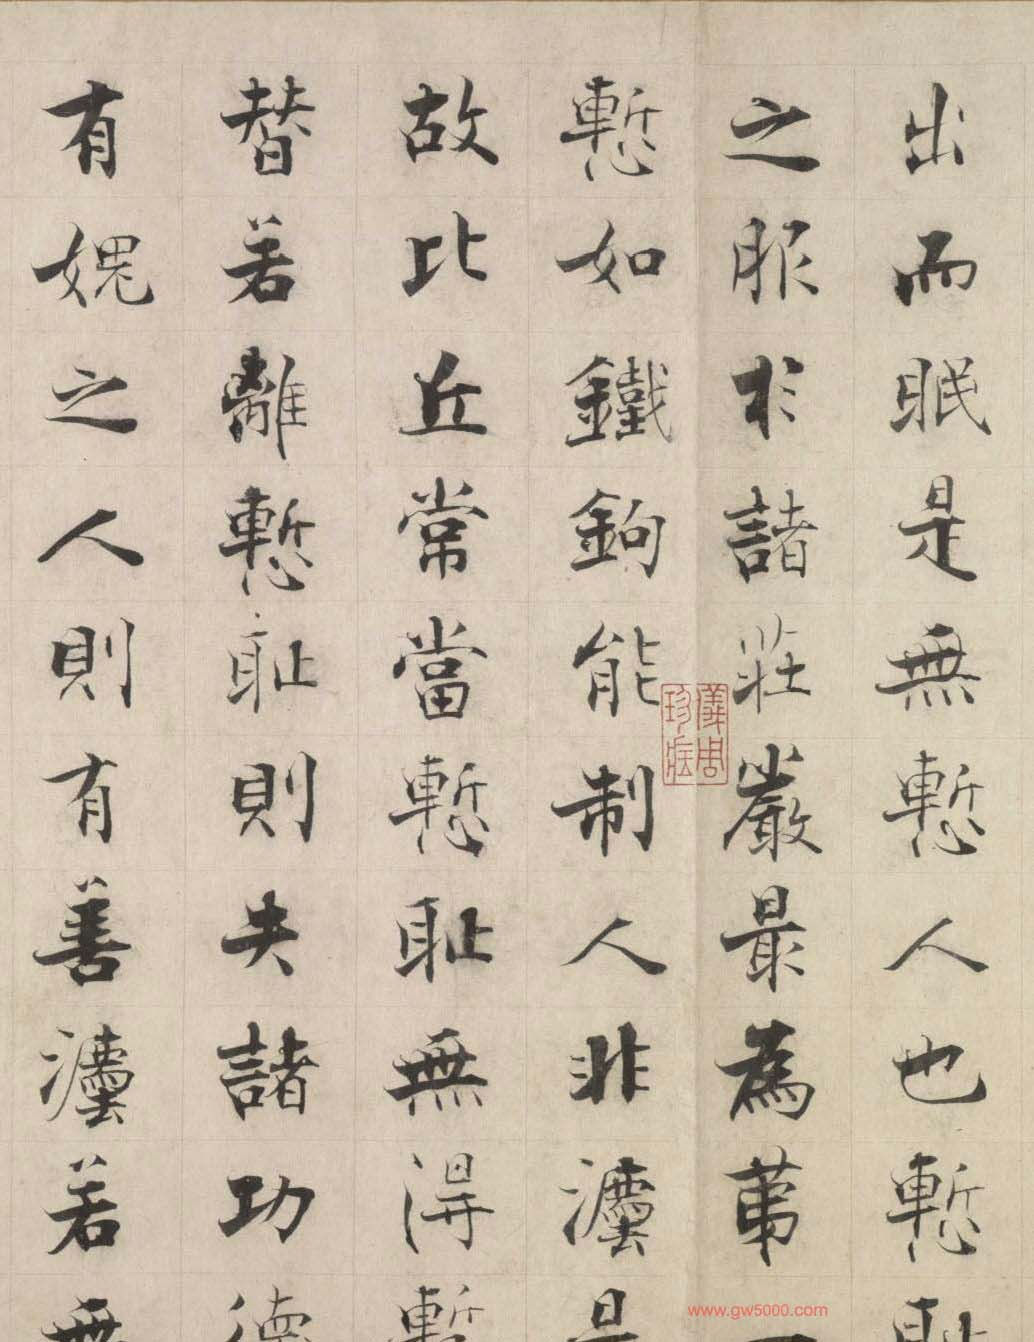 出而眠是無慙人也慙恥
之服於諸莊嚴最為苐一
慙如鐵鉤能制人非灋是
故比丘常當慙恥無得暫
替若離慙恥則失諸功德
有媿之人則有善灋若無
儀周珍藏
www.gw5000.com